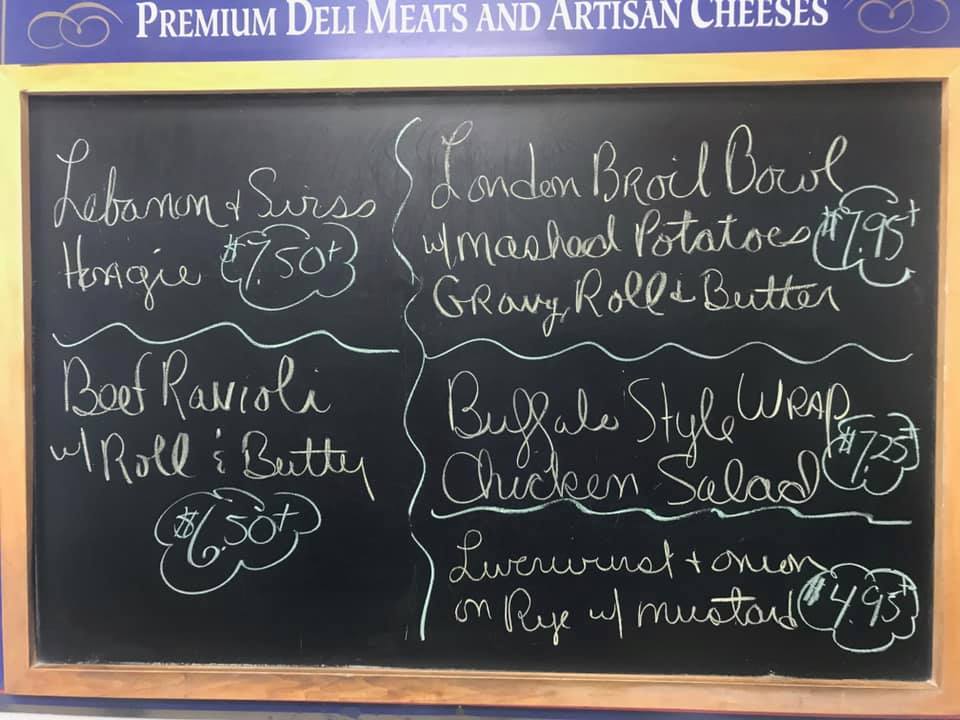 PREMIUM DELI MEATS AND ARTISAN CHEESES
Lebanon & Swiss
Hoagie $7.50+
Beef Ravioli
w/ Roll & Butter
$6.50+
London Broil Bowl
w/ mashed Potatoes $7.95+
Gravy, Roll & Butter
Buffalo Style WRAP
Chicken Salad $7.25+
Liverwurst + onion
on Rye w/ mustard $4.95+